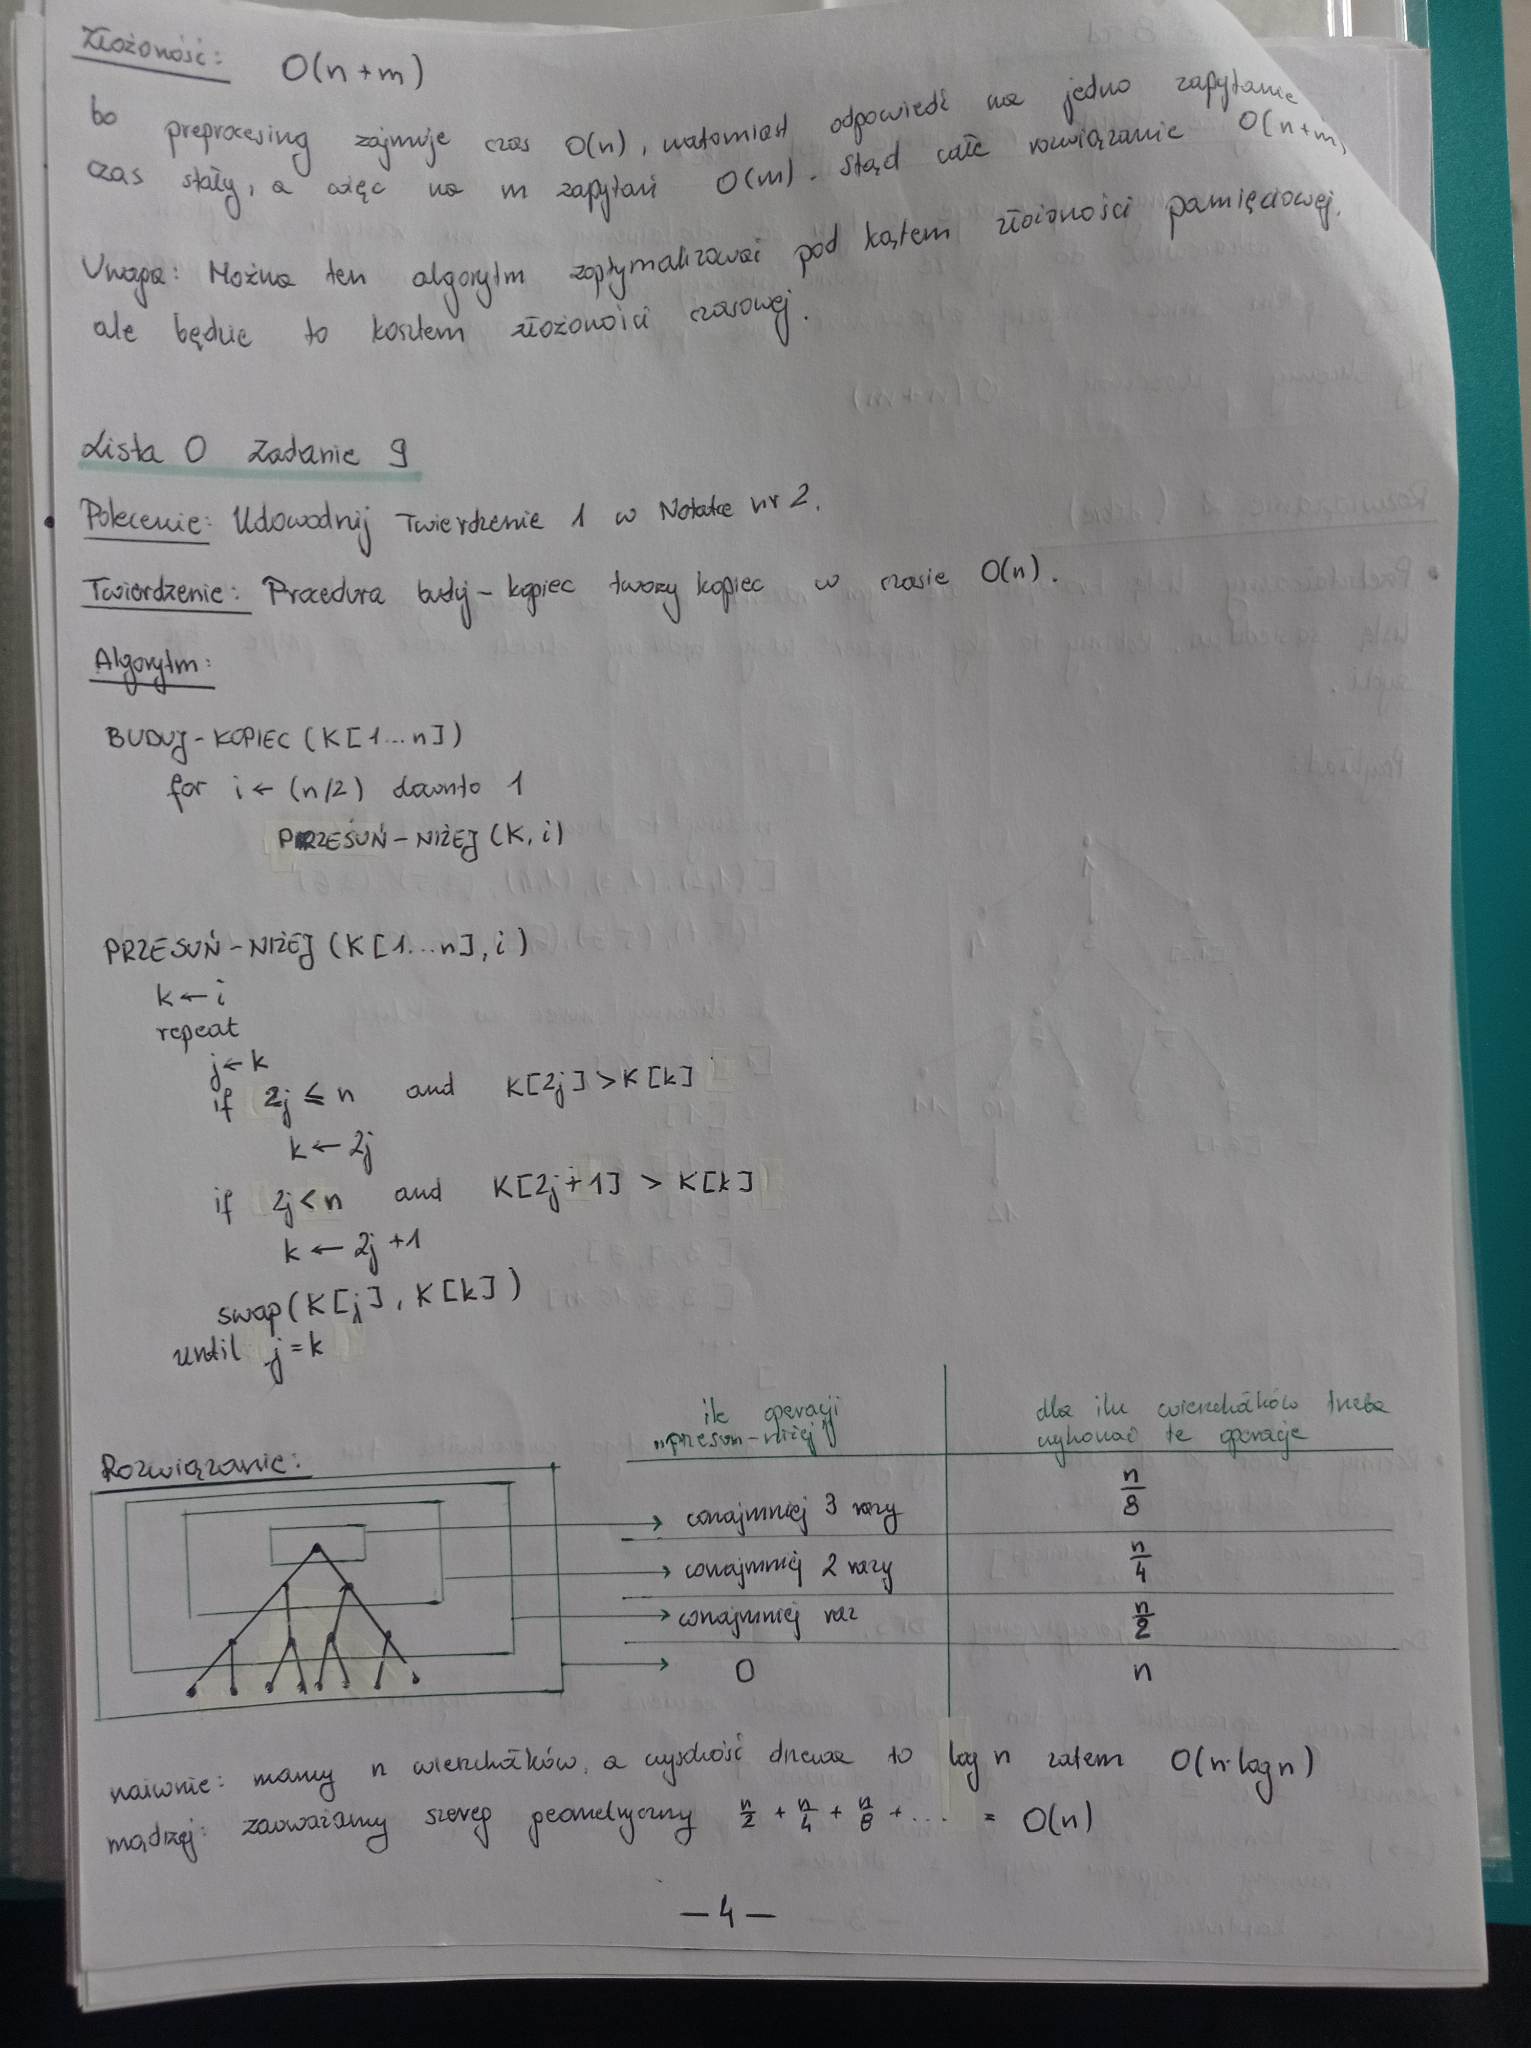 Złożoność: O(n+m)
bo preprocesing zajmuje czas O(n), natomiast odpowiedź na jedno zapytanie
czas stały, a więc na m zapytań O(m). Stąd całe rozwiązanie O(n+m)
Uwaga: Można ten algorytm zoptymalizować pod kątem złożoności pamięciowej,
ale będzie to kosztem złożoności czasowej.
Lista 0 Zadanie 9
Polecenie: Udowodnij Twierdzenie 1 w Notatce nr 2.
Twierdzenie: Procedura buduj-kopiec tworzy kopiec w czasie O(n).
Algorytm:
BUDUJ-KOPIEC (K[1...n])
for i ← (n/2) downto 1
PRZESUŃ-NIŻEJ (K, i)
PRZESUŃ-NIŻEJ (K[1...n], i)
k ← i
repeat
j ← k
if 2j ≤ n and K[2j] > K[k]
k ← 2j
if 2j < n and K[2j+1] > K[k]
k ← 2j+1
swap(K[j], K[k])
until j=k
Rozwiązanie:
ile operacji "przesuń-niżej"
dla ilu wierzchołków trzeba wykonać te operacje
conajmniej 3 razy n/8
conajmniej 2 razy n/4
conajmniej raz n/2
0 n
naiwnie: mamy n wierzchołków, a wysokość drzewa to log n zatem O(n·logn)
mądrzej: zauważamy szereg geometryczny n/2 + n/4 + n/8 + ... = O(n)
— 4 —